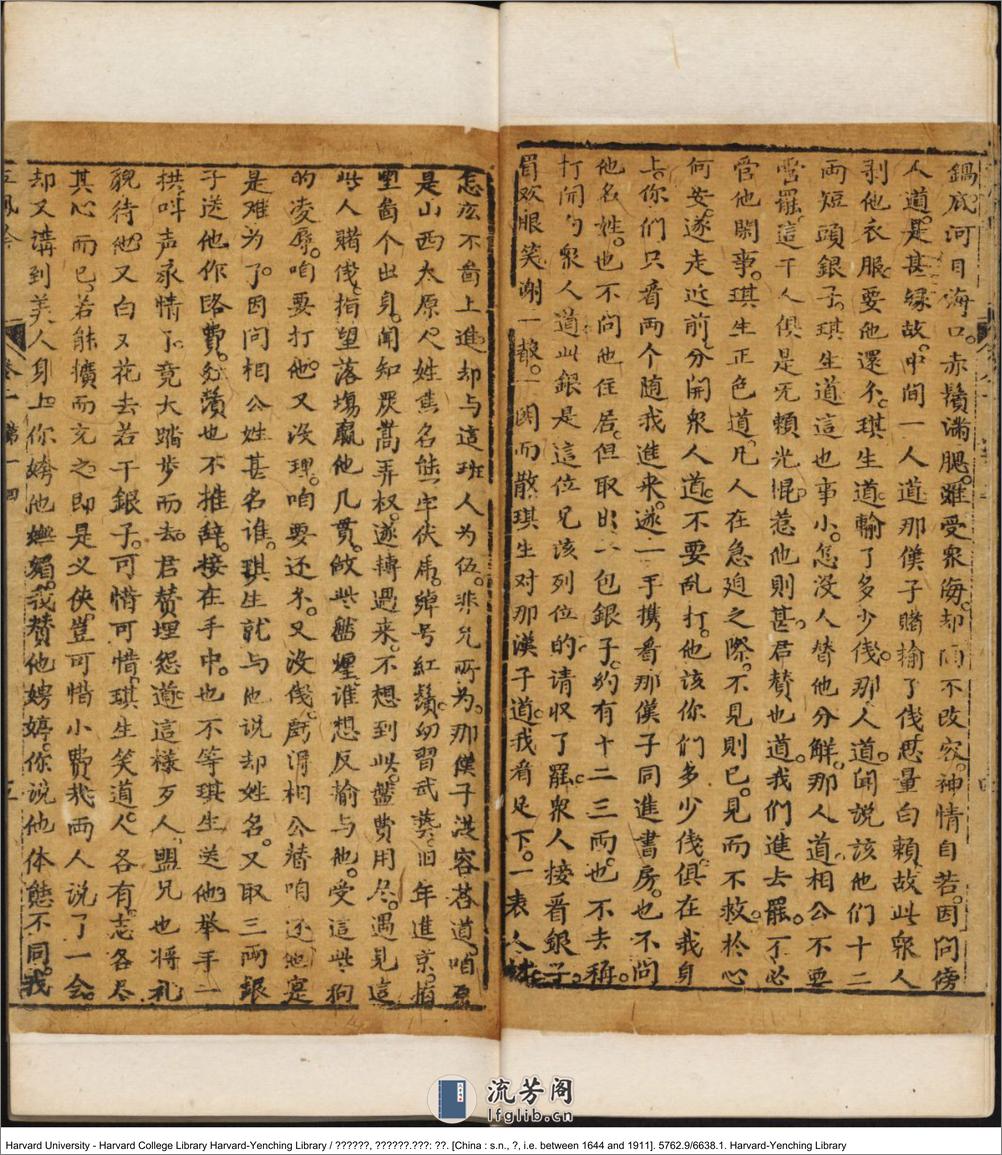 鍋底河目海口赤鬚滿腮雖受眾海却面不改容神情自若因问傍
人道是甚緣故中间一人道那僕子賭输了伐思量白賴故此众人
剥他衣服要他還不琪生道輸了多少伐那人道闻說該他們十二
两短頭銀子琪生道這也事小怎沒人替他分解那人道相公不要
雪罷這干人俱是无賴光棍惹他則甚君赞也道我們進去罷不必
管他閑事琪生正色道凡人在急迫之際不見則已見而不救於心
何安遂走近前分開众人道不要乱打他該你們多少伐俱在我身
上你們只着两个随我進来遂一手携着那僕子同進書房也不问
他名姓也不问他住居但取出一包銀子約有十二三两也不去稱
打開向众人道此銀是這位兄該列位的请収了羅众人接着銀子
眉欢眼笑谢一声一閧而散琪生对那漢子道我看足下一表人材
怎広不啚上進却与這班人为伍非兄所为那僕子洪容荅道咱家
是山西太原人姓焦名熊字伏馬绰号紅鬚幼習武藝旧年進京指
望啚个出身闻知嚴嵩弄权遂轉過来不想到此盤費用尽遇見這
些人賭伐指望落塲贏他几贯做些盤缠谁想反输与他受這些狗
的凌辱咱要打他又没理咱要还不又沒伐財得相公替咱还他寔
是难为了因问相公姓甚名谁琪生就与他说却姓名又取三两銀
子送他作路費焦鬚也不推辞接在手中也不等琪生送他举手一
拱叫声承情了竟大踏步而去君赞埋怨道這樣歹人盟兄也将礼
貌待他又白又花去若干銀子可惜可惜琪生笑道人各有志各尽
其心而已若能擴而充之即是义侠豈可惜小費我两人说了一会
却又講到美人身上你誇他嫵媚我赞他娉婷你说他体態不同我
五鳳吟
卷一 第一回
五